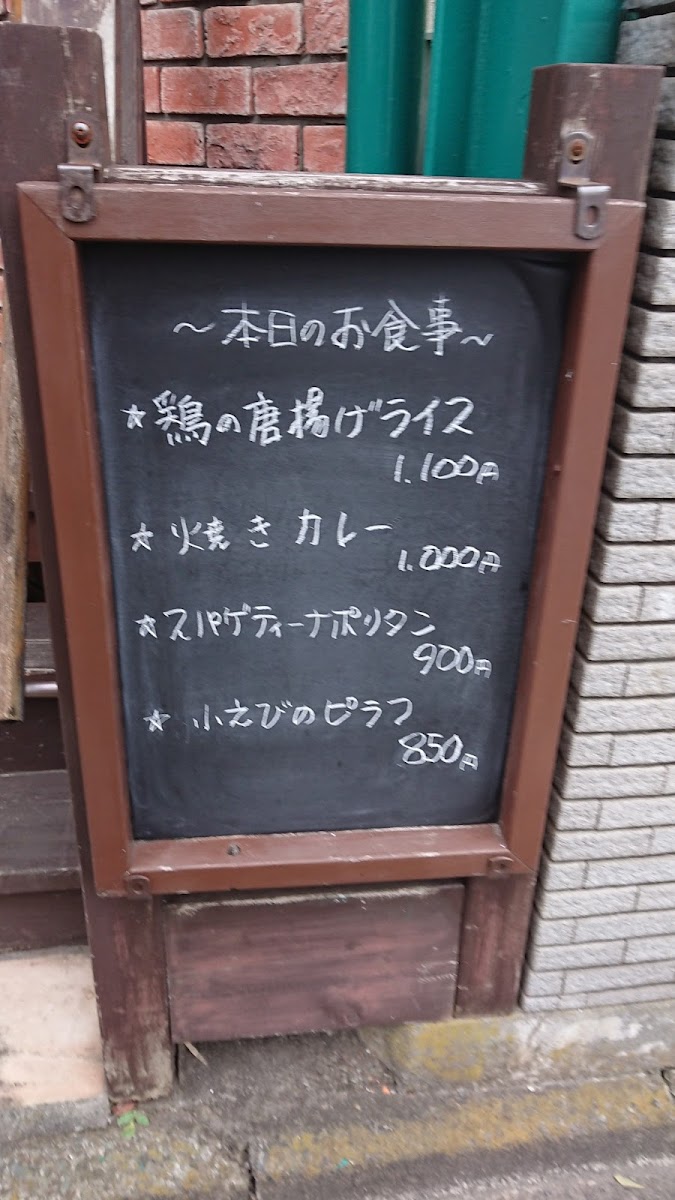 ～本日のお食事～
☆鶏の唐揚げライス
1.100円
☆焼きカレー
1.000円
☆スパゲティーナポリタン
900円
☆小えびのピラフ
850円